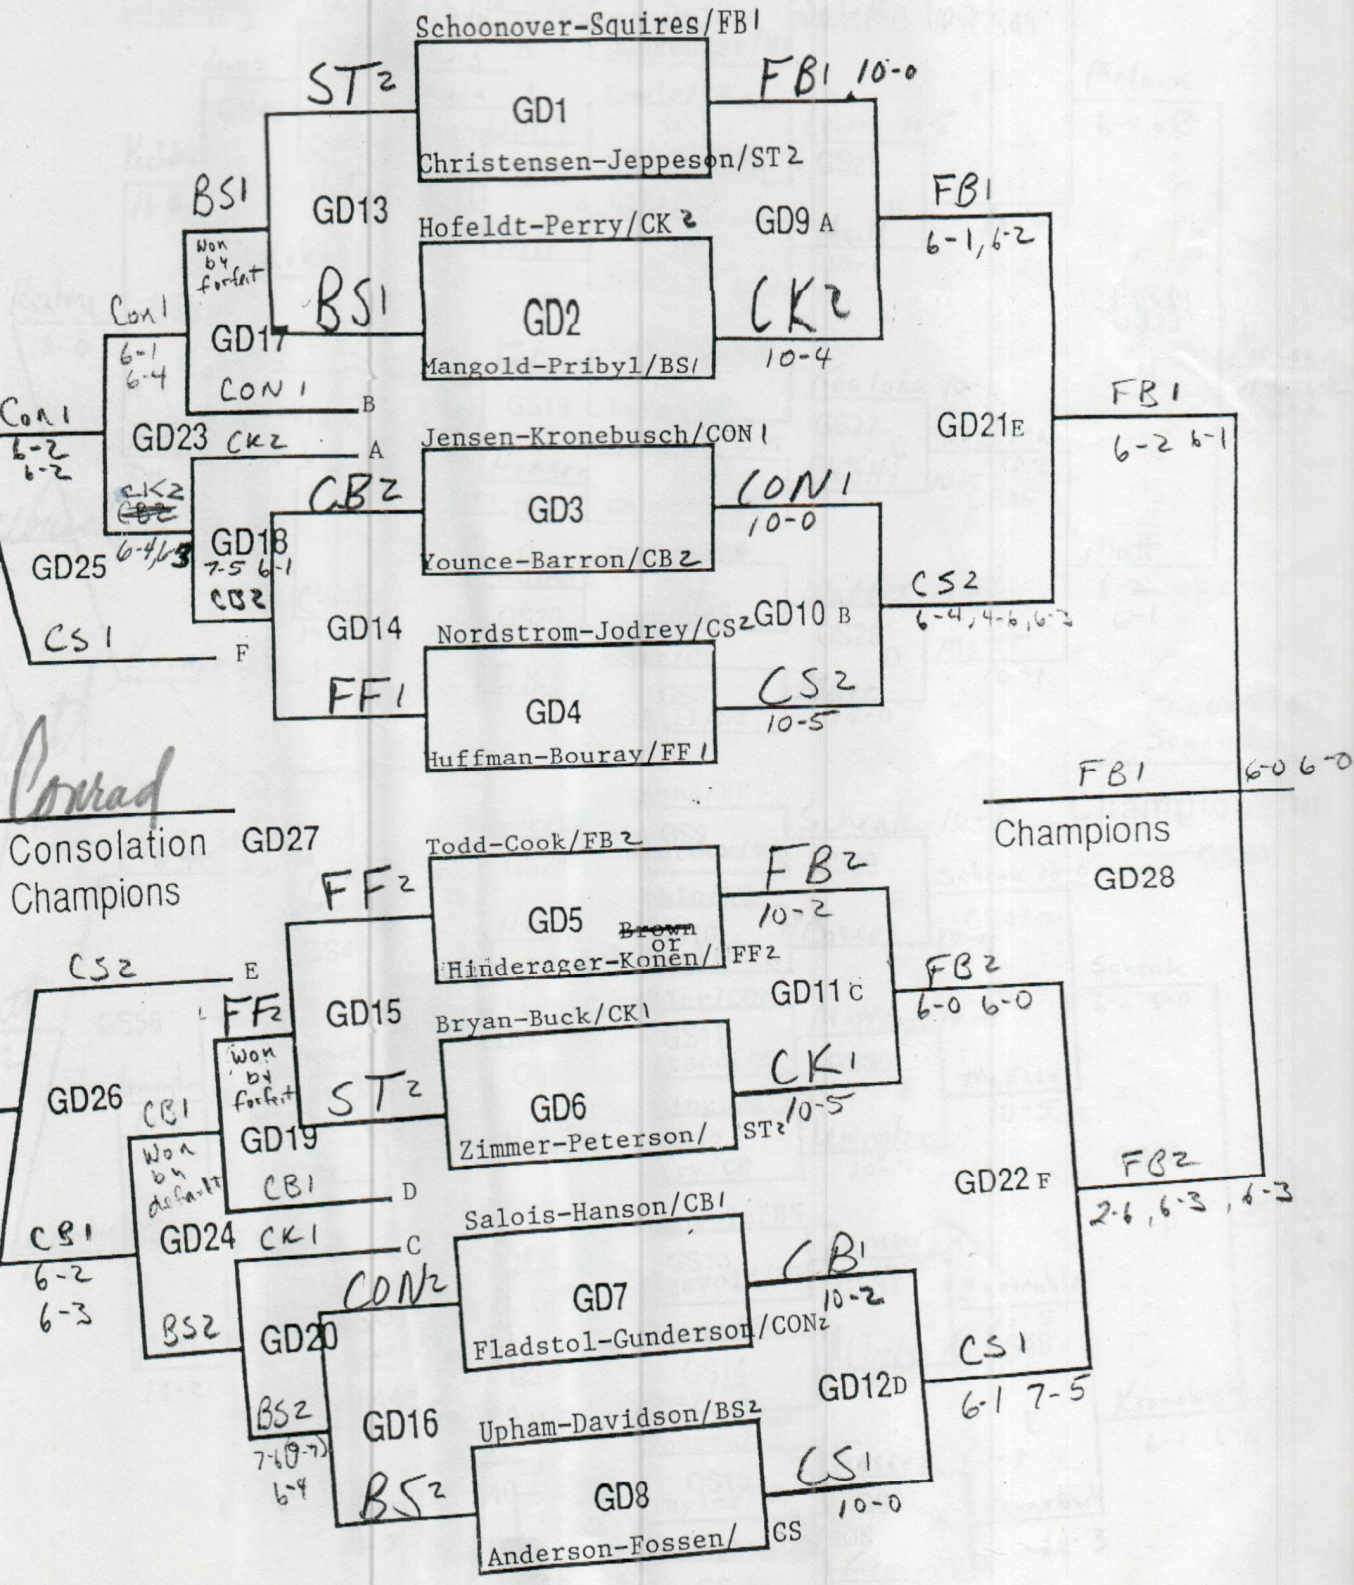 Schoonover-Squires/FB1
ST2
GD1
FB1 10-0
Christensen-Jeppeson/ST2
BS1
GD13
Hofeldt-Perry/CK2
GD9 A
FB1
6-1, 6-2
Won
by
forfeit
BS1
GD2
CK2
10-4
Con1
6-1
6-4
GD17
Mangold-Pribyl/BS1
CON1
B
Con1
6-2
6-2
GD23
CK2
A
Jensen-Kronebusch/CON1
GD21E
FB1
6-2 6-1
CK2
CB2
6-4, 6-3
CB2
GD3
CON1
10-0
GD18
7-5 6-1
CB2
Younce-Barron/CB2
GD25
CS2
6-4, 4-6, 6-3
GD14
Nordstrom-Jodrey/CS2
GD10 B
CS1
F
FF1
GD4
CS2
10-5
Huffman-Bouray/FF1
Conrad
Consolation
Champions
GD27
FB1
6-0 6-0
Champions
GD28
Todd-Cook/FB2
FF2
GD5
FB2
10-2
Brown
or
Hinderager-Konen/ FF2
CS2
E
FF2
GD15
GD11 C
FB2
6-0 6-0
Bryan-Buck/CK1
Won
by
forfeit
ST2
GD6
CK1
10-5
GD26
CB1
GD19
Zimmer-Peterson/ ST2
Won
by
default
CB1
D
GD22 F
FB2
2-6, 6-3, 6-3
Salois-Hanson/CB1
CB1
6-2
6-3
GD24
CK1
C
CON2
GD7
CB1
10-2
BS2
GD20
Fladstol-Gunderson/CON2
GD12D
CS1
6-1 7-5
BS2
7-6(9-7)
6-4
GD16
Upham-Davidson/BS2
BS2
GD8
CS1
10-0
Anderson-Fossen/ CS